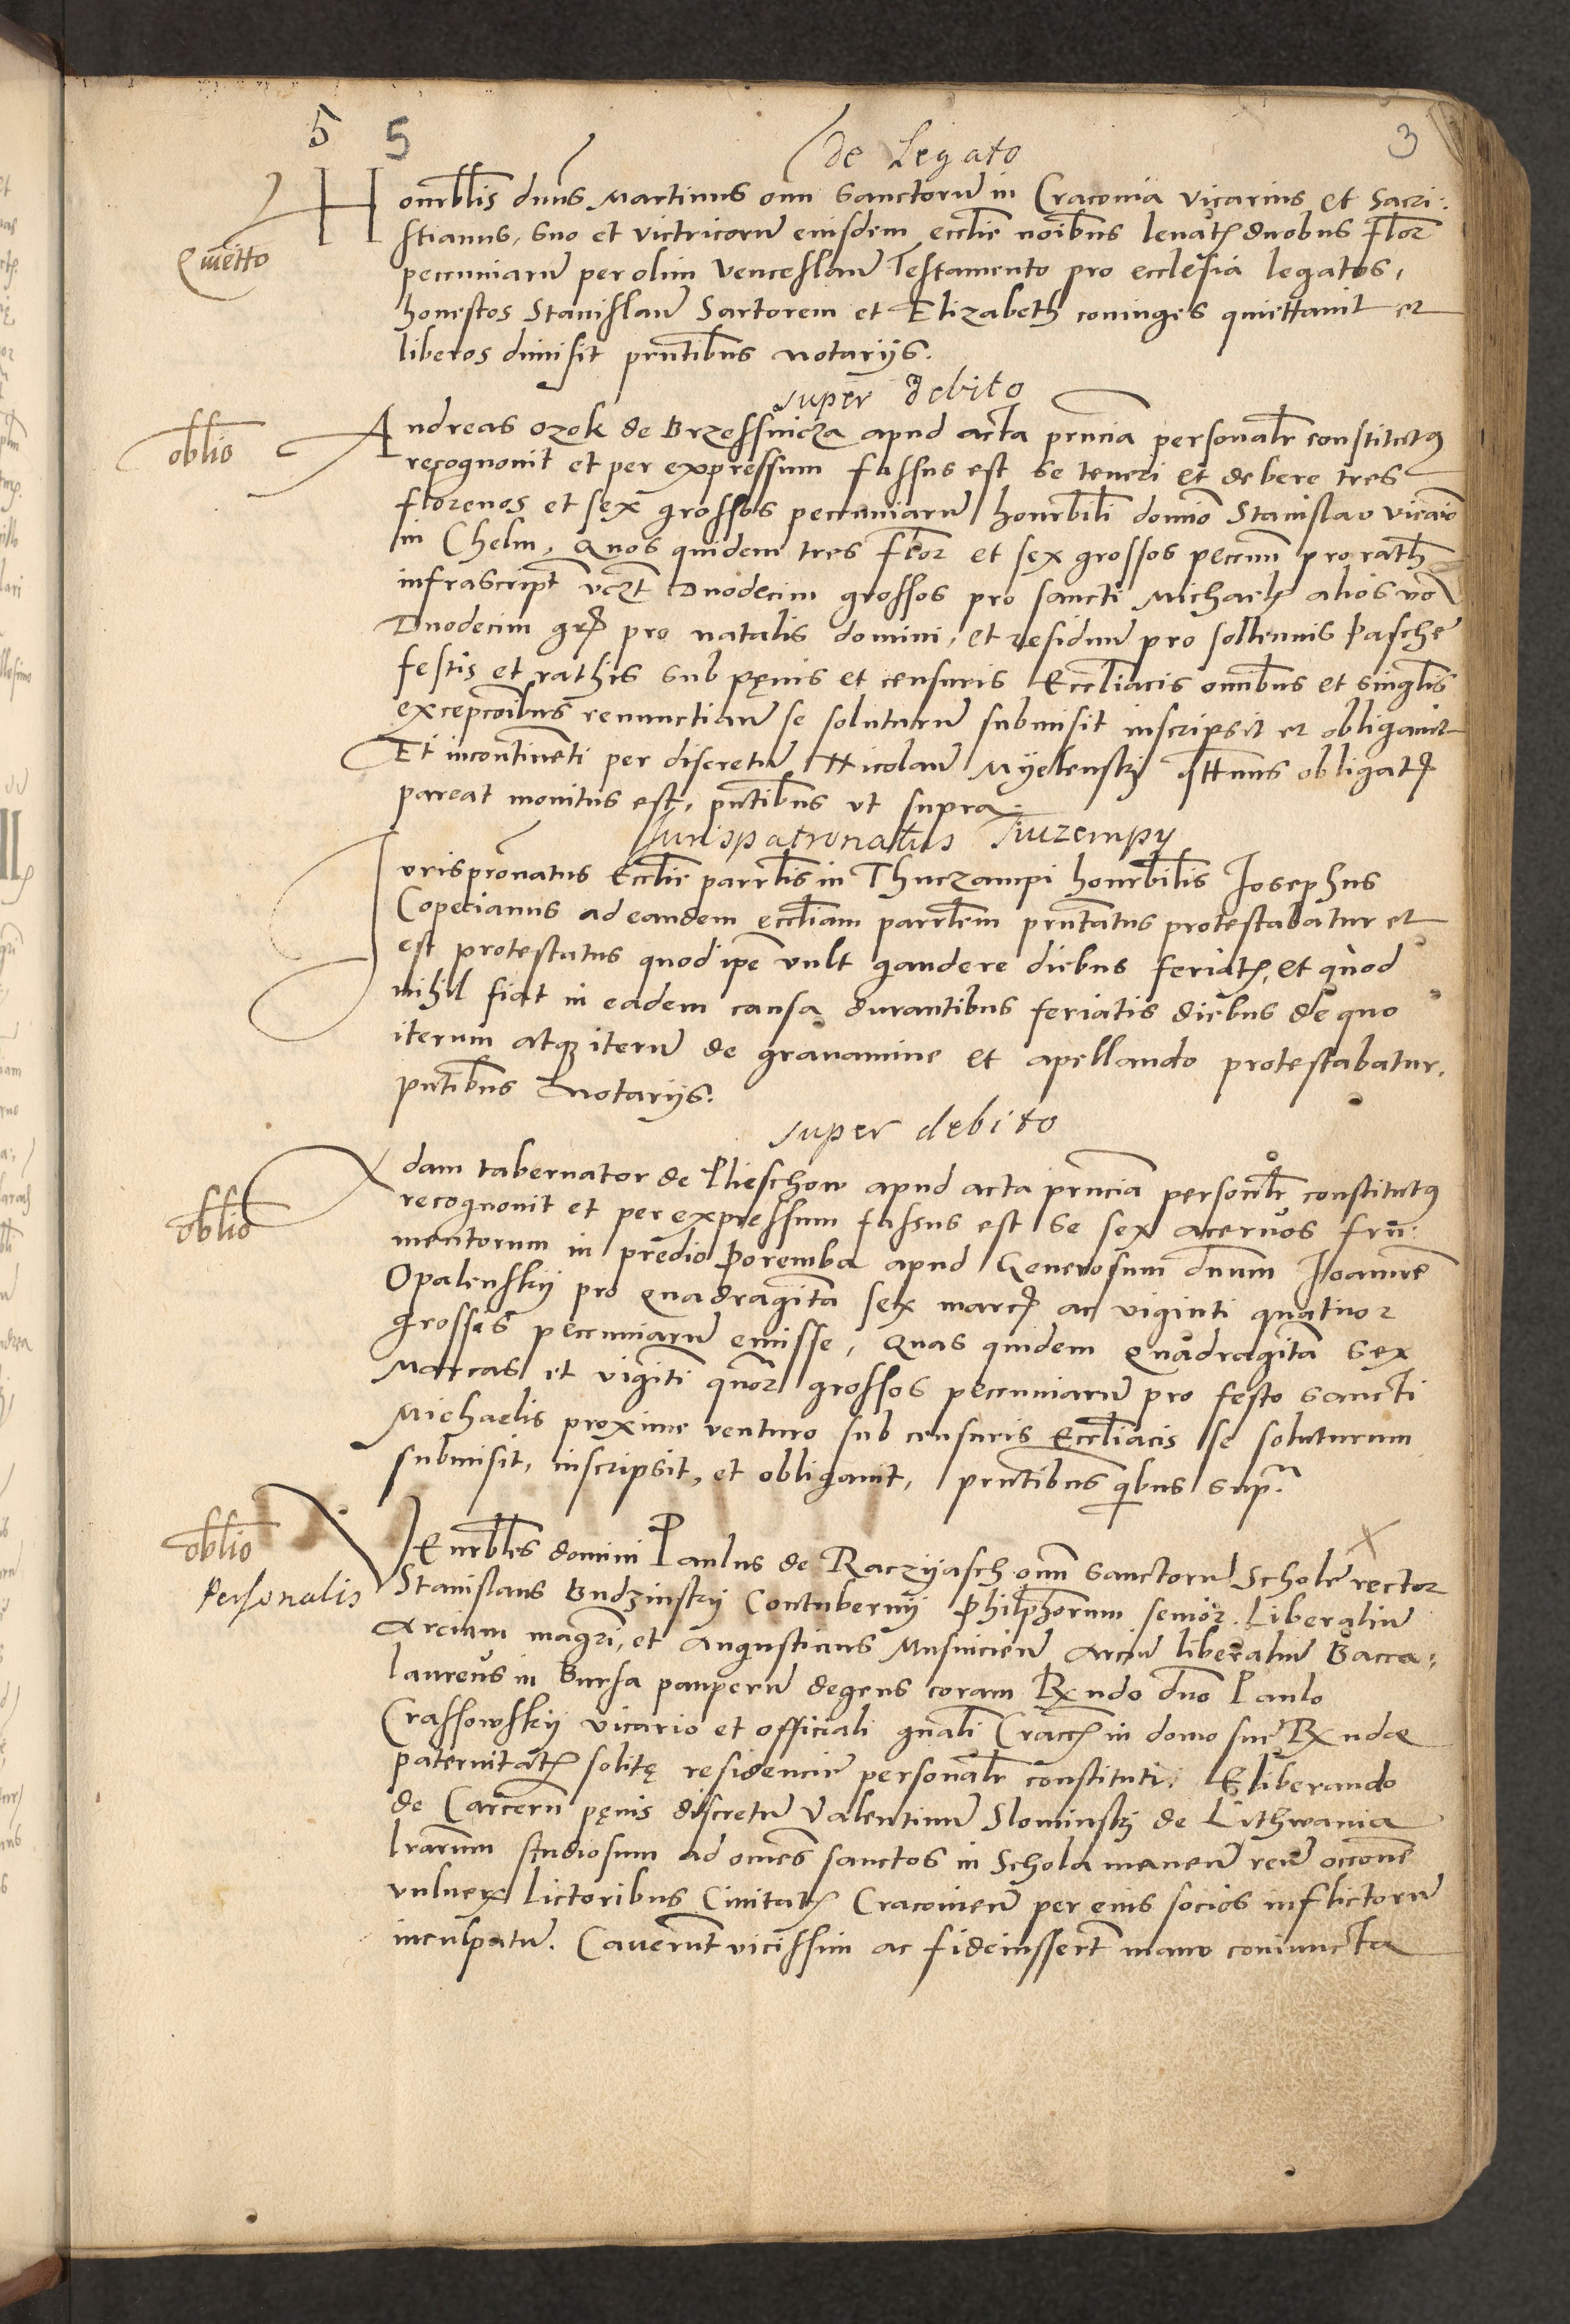 5 5 3
de Legato
Honrblis dnus Martinus omn Sanctoru in Craconia vicarius et Sacri:
stianus, suo et victricoru eiusdem ecclie noibus levatis duobus Flor
Quietto
pecuniaru per olim Venceslau Testamento pro ecclesia legatos,
honestos Stanislau Sartorem et Elizabeth coniuges quiettauit et
liberos dimisit prntibus notarijs.
super debito
oblio
Andreas Ozok de Brzessnicza apud acta prncia personalr constitutus
recognouit et per expressum fassus est se teneri et debere tres
florenos et sex grossos pecuniaru honrbili domio Stanislao vicario
in Chelm, Quos quidem tres Flor et sex grossos pecun pro rath
infrascript vczt Duodecim grossos pro sancti Michaelis alios vo
Duodecim gros pro natalis domini, et residuu pro sollennis Pasche
festis et rathis sub penis et censuris Eccliacis omnibus et singlis
excepcoibus renunctiau se soluturu submisit inscripsit et obligauit
Et incontinenti per discretu Nicolau Myelensky qttnus obligatis
pareat monitus est, pntibus vt supra.
Jurispatronatus Tuzempy
Jurispronatus Ecclie parrlis in Thuczampi honrbilis Josephus
Copecianus ad eandem eccliam parrlem prntatus protestabatur et
est protestatus quod ipe vult gaudere diebus feriatis, et quod
nihil fiat in eadem causa durantibus feriatis diebus de quo
iterum atque iteru de grauamine et apellando protestabatur.
pntibus Notarijs.
super debito
Adam tabernator de Plieschow apud acta prncia personlr constitutus
oblio
recognouit et per expressum fassus est se sex aceruos fru:
mentorum in predio Poremba apud Generosum dnum Joanne
Opalensky pro quadraginta sex marcis ac viginti quatuor
grossis pecuniaru emisse, Quas quidem quadraginta sex
Marcas et viginti quor grossos pecuniaru pro festo sancti
Michaelis proxime venturo sub censuris Eccliacis se soluturum
submisit, inscripsit, et obligauit, prntibus qibus supra
oblio
Personalis
Venrbles domini Paulus de Raczyasch omn Sanctoru Schole rector
Stanislaus Budzinsky Contubernij Philphorum senior. Liberaliu
Arcium magri, et Augustinus Musnicien arciu liberaliu Bacca:
laureus in Bursa pauperu degens coram Rx ndo dno Paulo
Crassowsky vicario et officiali gnali Craccis in domo sue Rx ndae
paternitatis solite residencie personalr constituti, Eliberando
de Carceru penis discretu Valentinu Slominsky de Lithwania
lrarum studiosum ad omes sanctos in Schola manen reu occone
vulnerx lictoribus Ciuitatis Cracouien per eius socios inflictoru
inculpatu. Cauerunt vicissim ac fideiusserut manu coniuncta